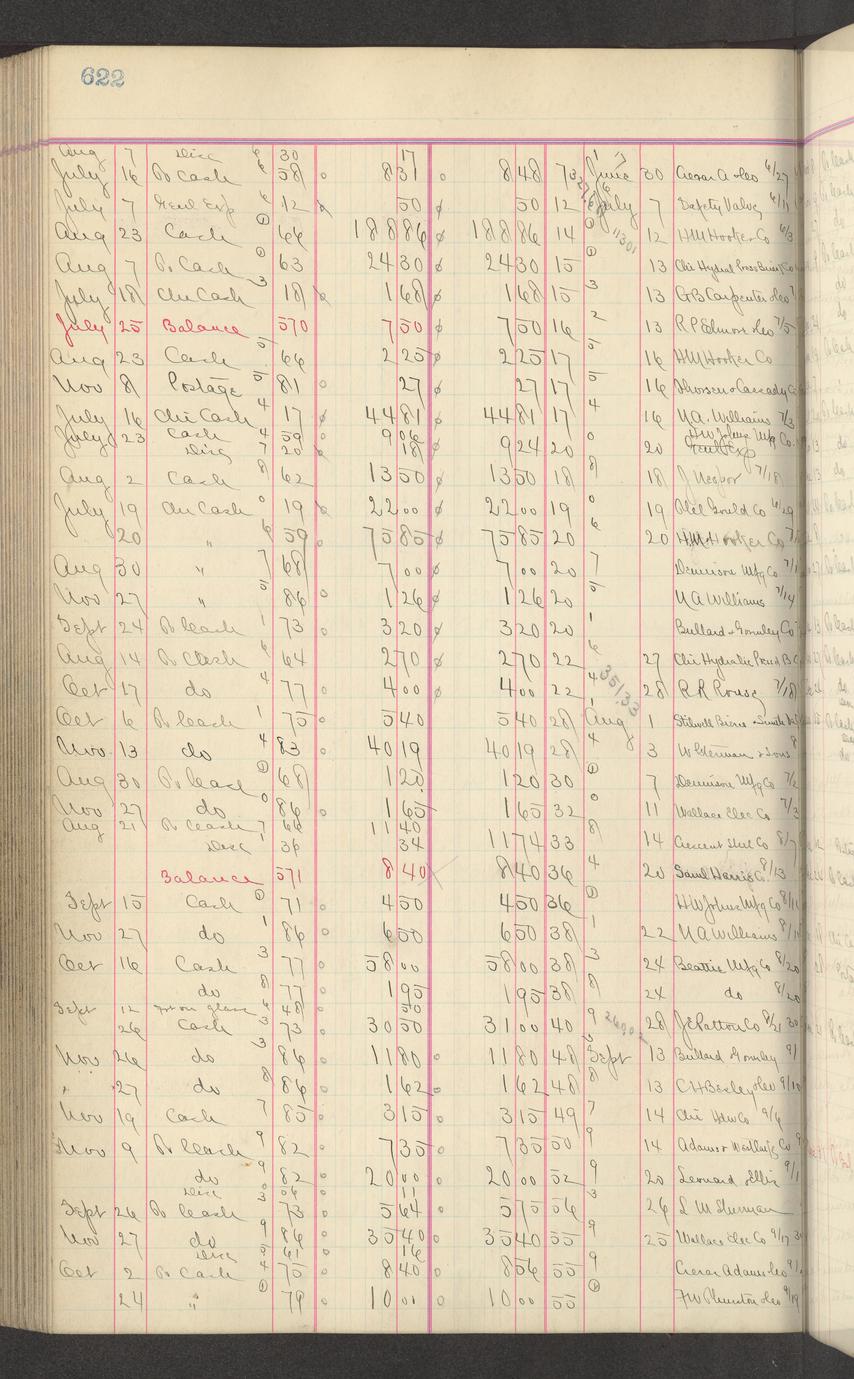 622
Aug 7 Disc 6 30 17
July 16 To Cash 6 58 831 848 7 June 30 Crerar A &co 6/27
July 7 Genl Exp 6 12 50 50 12 July 7 Safety Valve
Aug 23 Cash 66 188 86 188 86 14 12 H M Hooker Co 6/3
Aug 7 To Cash 63 24 30 24 30 15 13 Chi Hydraul Press Brick Co
July 18 Chi Cash 3 18 1 68 1 68 15 3 13 G B Carpenter &co
July 25 Balance 570 7 50 7 50 16 2 13 R P Elmore &co 7/5
Aug 23 Cash 5 66 2 25 2 25 17 5 16 H M Hooker Co
Nov 8 Postage 5 81 27 27 17 5 16
July 16 Chi Cash 4 17 44 81 44 81 17 4 16 N A. Williams 7/3
July 23 Cash 4 59 9 06 H W Johns Mfg Co.
Disc 7 20 18 9 24 20 0 20 Genl Exp
Aug 2 Cash 8 62 13 50 13 50 18 8 18 7/18
July 19 Chi Cash 0 19 22 00 22 00 19 0 19 Gould Co
20 " 6 59 75 85 75 85 20 6 20 H M Hooker Co
Aug 30 " 7 68 7 00 7 00 20 7 Dennison Mfg Co 7/1
Nov 27 " 5 86 1 26 1 26 20 5 N A Williams 7/14
Sept 24 To Cash 1 73 3 20 3 20 20 1 Bullard & Gormley Co
Aug 14 To Cash 6 64 2 70 2 70 22 6 27 Chi Hydraulic Press B Co
Oct 17 do 4 77 4 00 4 00 22 4 28 R R Rouse 7/18
3 51.33
Oct 6 To Cash 1 75 5 40 5 40 28 1 Aug 1 Stilwell Bierce & Smith
Nov 13 do 4 83 40 19 40 19 28 4 3 & Sons
Aug 30 To Cash 68 1 20 1 20 30 7 Dennison Mfg Co 7/2
Nov 27 do 0 86 1 65 1 65 32 0 11 Wallace Elec Co 7/3
Aug 21 To Cash 7 66 11 40
Disc 1 36 34 11 74 33 8 14 Crescent Steel Co 8/7
Balance 571 8 40 8 40 36 4 20 Saml Harris Co 8/13
Sept 15 Cash 71 4 50 4 50 36 H W Johns Mfg Co 8/11
Nov 27 do 1 86 6 50 6 50 38 1 22 N A Williams
Oct 16 Cash 3 77 58 00 58 00 38 3 24 Beattie Mfg Co 8/20
do 8 77 1 95 1 95 38 8 24 do 8/20
Sept 12 glass 6 48 50
26 Cash 3 73 30 50 31 00 40 9 28 J E Patton Co 8/21
Nov 26 do 3 86 11 80 11 80 48 3 Sept 13 Bullard Gormley 9/
" 27 do 8 86 1 62 1 62 48 8 13 C H Besley &co 9/10
Nov 19 Cash 7 85 3 15 3 15 49 7 14 Chi Hdw Co 9/6
Nov 9 To Cash 9 82 7 35 7 35 50 9 14 Adams & Westlake Co
do 9 82 20 00 20 00 52 9 20 Leonard & Ellis 9/1
Disc 0 56 11
Sept 26 To Cash 3 73 5 64 5 75 56 3 26 L M Sherman
Nov 27 do 9 86 35 40 35 40 55 9 25 Wallace Elec Co 9/17
Disc 5 61 16
Oct 2 To Cash 4 75 8 40 8 56 55 9 Crerar Adams &co
24 " 79 10 00 10 00 55 &co 9/19